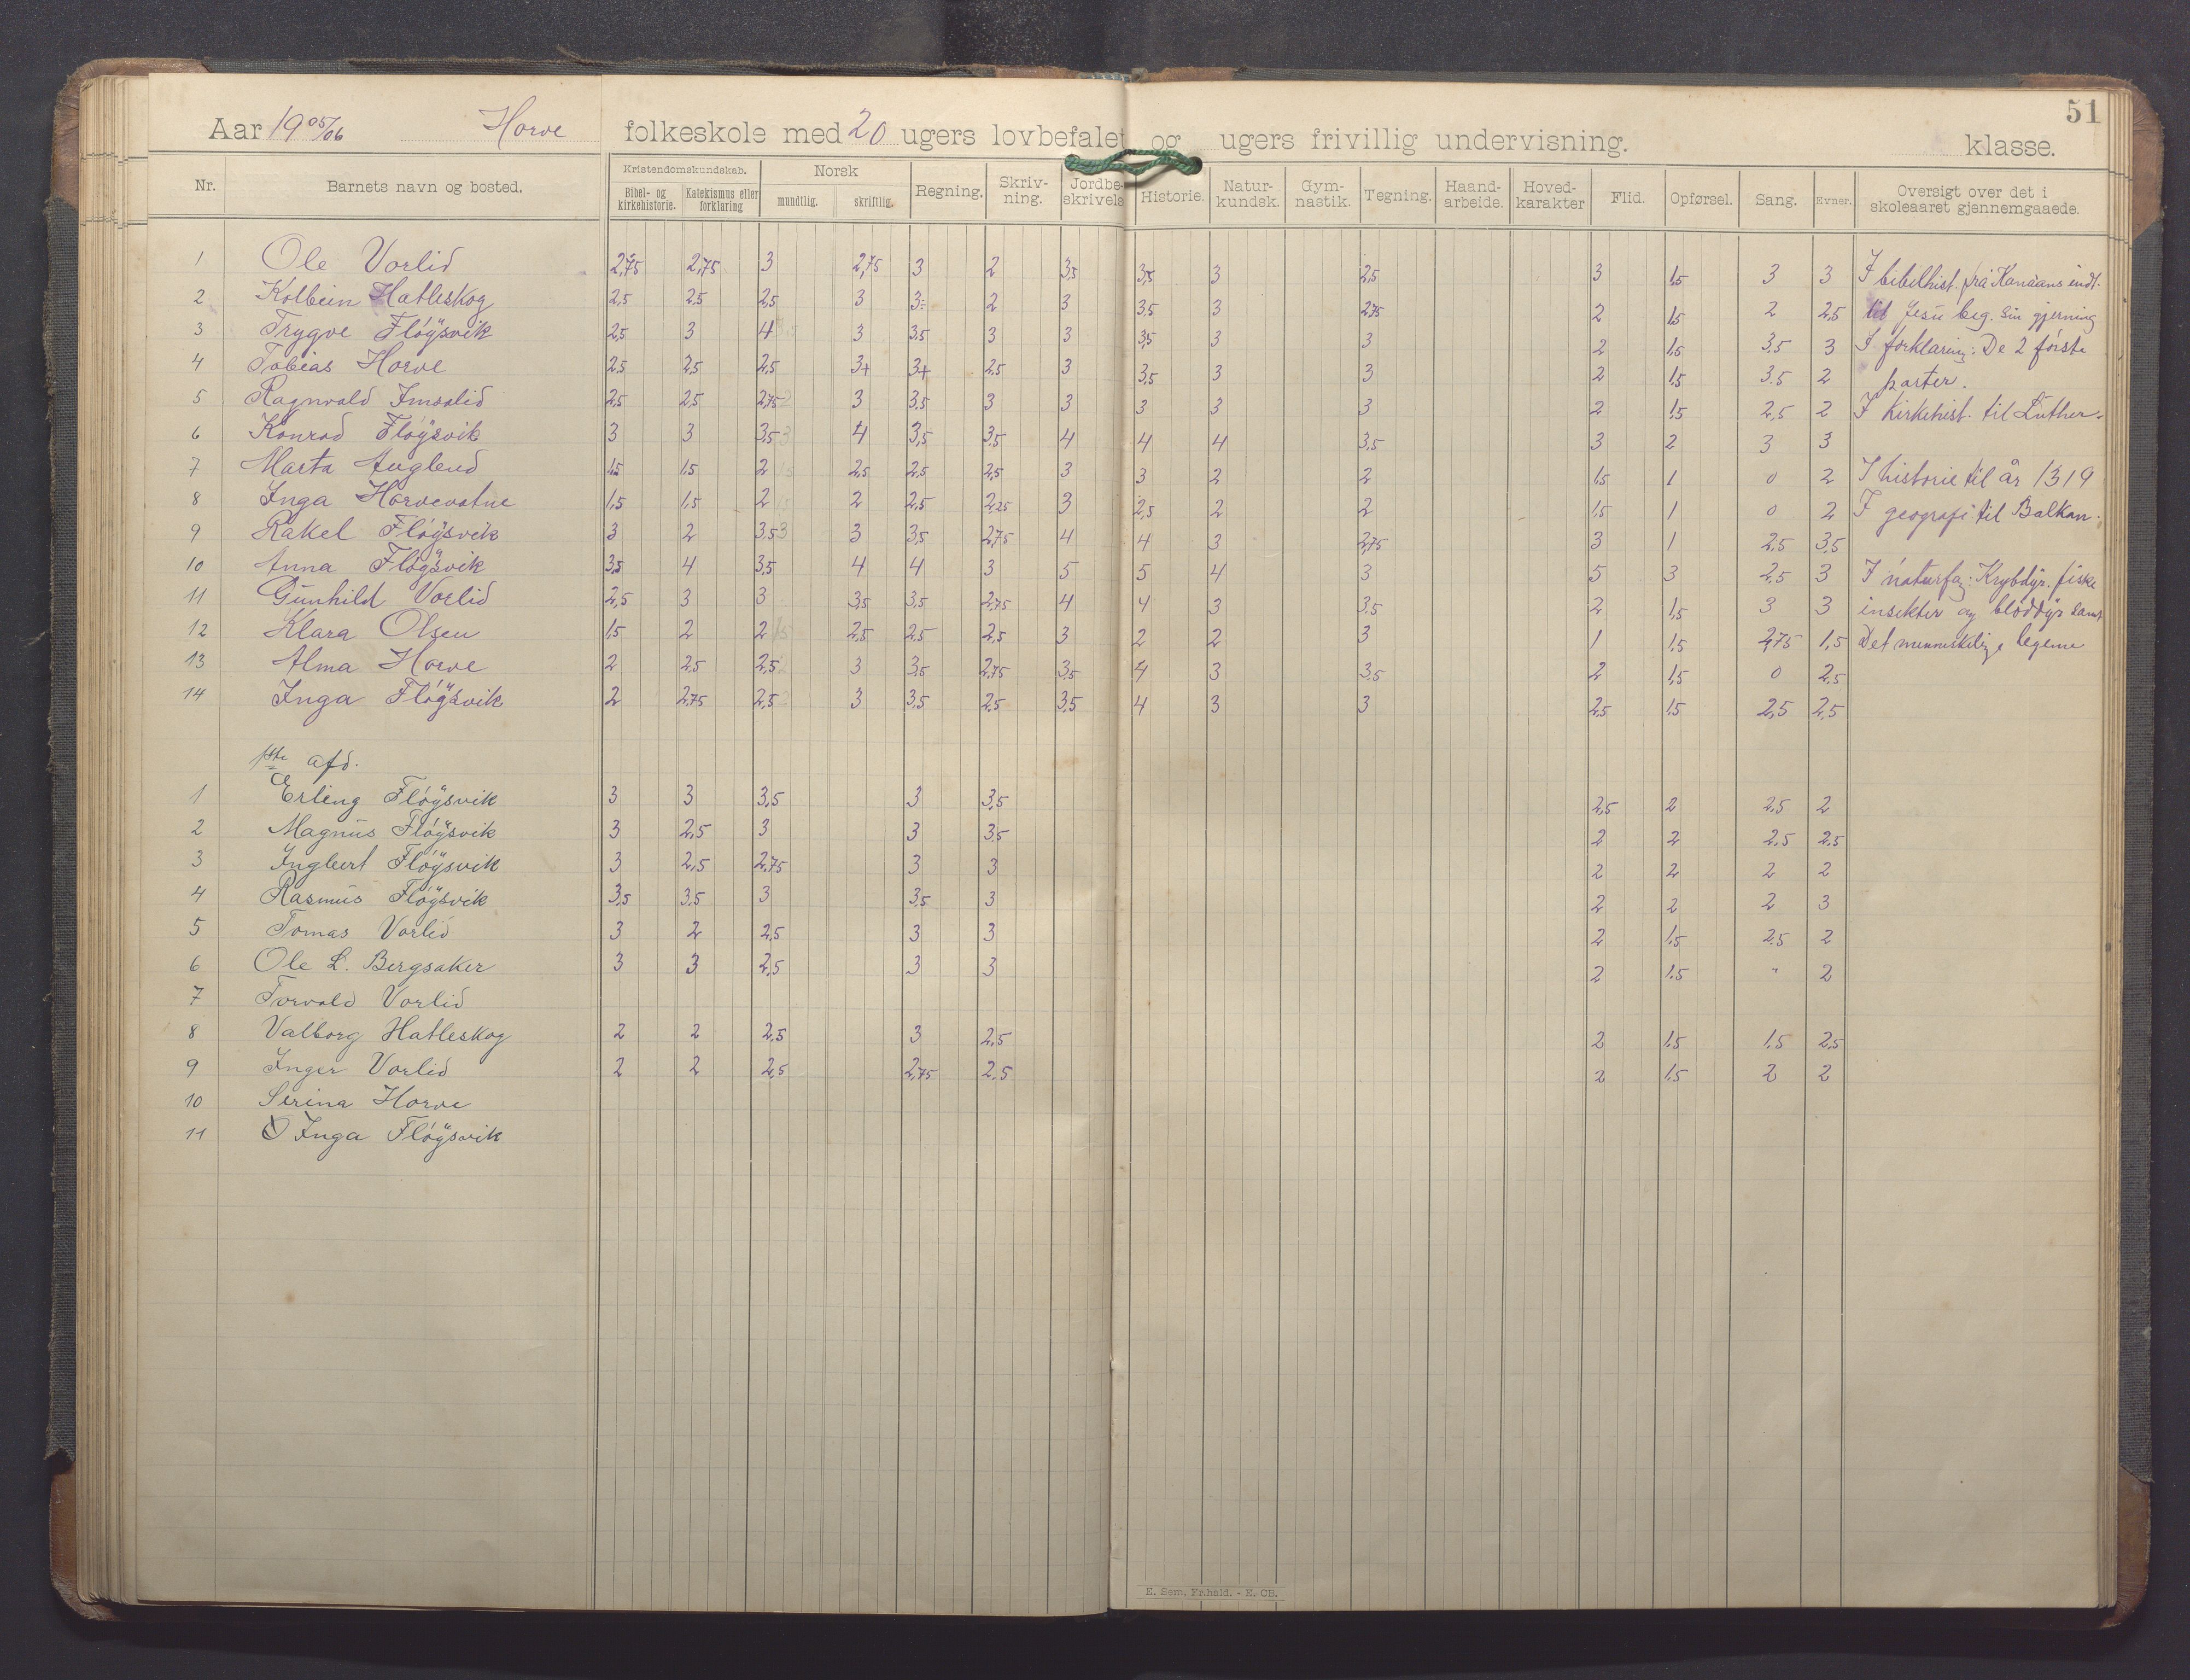 51
Aar 1905/06 Horve folkeskole med 20 ugers lovbefalet og ugers frivillig undervisning. klasse.
Nr. Barnets navn og bosted. Kristendomskundskab. Bibel- og kirkehistorie. Katekismus eller forklaring Norsk mundtlig. skriftlig. Regning. Skriv-ning. Jordbe-skrivels Historie. Natur-kundsk. Gym-nastik. Tegning. Haand-arbeide. Hoved-karakter Flid. Opførsel. Sang. Evner. Oversigt over det i skoleaaret gjennemgaaede.
1 Ole Vorlid 2,75 2,75 3 2,75 3 2 3,5 3,5 3 2,5 3 1,5 3 3 I bibelhist. frå Kanaans indt.
2 Kolbein Hatleskog 2,5 2,5 2,5 3 3÷ 2 3 3,5 3 2,75 2 1,5 2 2,5 til Jesu beg. sin gjerning
3 Trygve Fløysvik 2,5 3 4 3 3,5 3 3 3,5 3 3 2 1,5 3,5 3 I forklaring: De 2 første
4 Tobias Horve 2,5 2,5 2,5 3+ 3+ 2,5 3 3,5 3 3 2 1,5 3,5 2 parter.
5 Ragnvald Imsalid 2,5 2,5 2,75 3 3,5 3 3 3 3 3 2 1,5 2,5 2 I kirkehist. til Luther.
6 Konrad Fløysvik 3 3 3,5 4 3,5 3,5 4 4 4 3,5 3 2 3 3
7 Marta Auglend 1,5 1,5 2 2,5 2,5 2,5 3 3 2 2 1,5 1 0 2 I historie til år 1319
8 Inga Horvevatne 1,5 1,5 2 2 2,5 2,25 3 2,5 2 2 1,5 1 0 2 I geografi til Balkan.
9 Rakel Fløysvik 3 2 3,5 3 3,5 2,75 4 4 3 2,75 3 1 2,5 3,5
10 Anna Fløgsvik 3,5 4 3,5 4 4 3 5 5 4 3 5 3 2,5 3 I naturfag: Krybdyr, fiske
11 Gunhild Vorlid 2,5 3 3 3,5 3,5 2,75 4 4 3 3,5 2 1,5 3 3 insekter og bløddyr samt
12 Klara Olsen 1,5 2 2 2,5 2,5 2,5 3 2 2 3 1 1,5 2,75 1,5 Det menneskelige legeme
13 Alma Horve 2 2,5 2,5 3 3,5 2,75 3,5 4 3 3,5 2 1,5 0 2,5
14 Inga Fløysvik 2 2,75 2,5 3 3,5 2,5 3,5 4 3 3 2,5 1,5 2,5 2,5
1ste afd.
1 Erling Fløysvik 3 3 3,5 3 3,5 2,5 2 2,5 2
2 Magnus Fløysvik 3 2,5 3 3 3,5 2 2 2,5 2,5
3 Ingbert Fløysvik 3 2,5 2,75 3 3 2 2 2 2
4 Rasmus Fløysvik 3,5 3,5 3 3,5 3 2 2 2 3
5 Tomas Vorlid 3 2 2,5 3 3 2 1,5 2,5 2
6 Ole L. Bergsaker 3 3 2,5 3 3 2 1,5 " 2
7 Torvald Vorlid
8 Valborg Hatleskog 2 2 2,5 3 2,5 2 1,5 1,5 2,5
9 Inger Vorlid 2 2 2,5 2,75 2,5 2 1,5 2 2
10 Serina Horve
11 O Inga Fløysvik
E. Sem, Fr.hald. - E. CB.